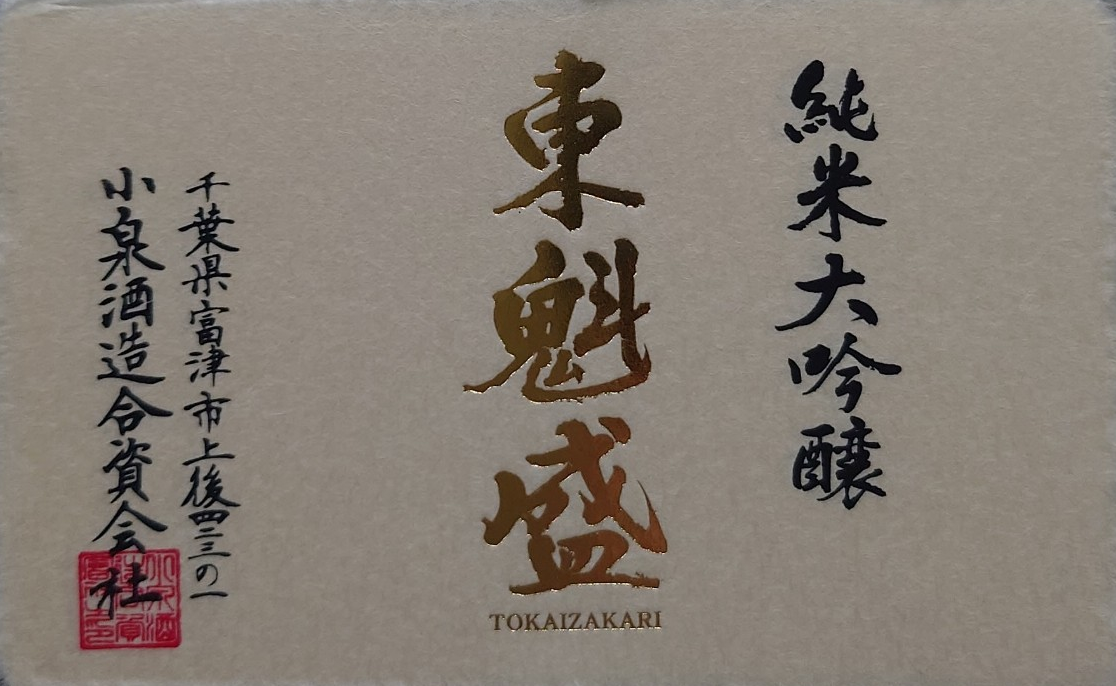 純米大吟醸
東魁盛
TOKAIZAKARI
千葉県富津市上後四二三の一
小泉酒造合資会社